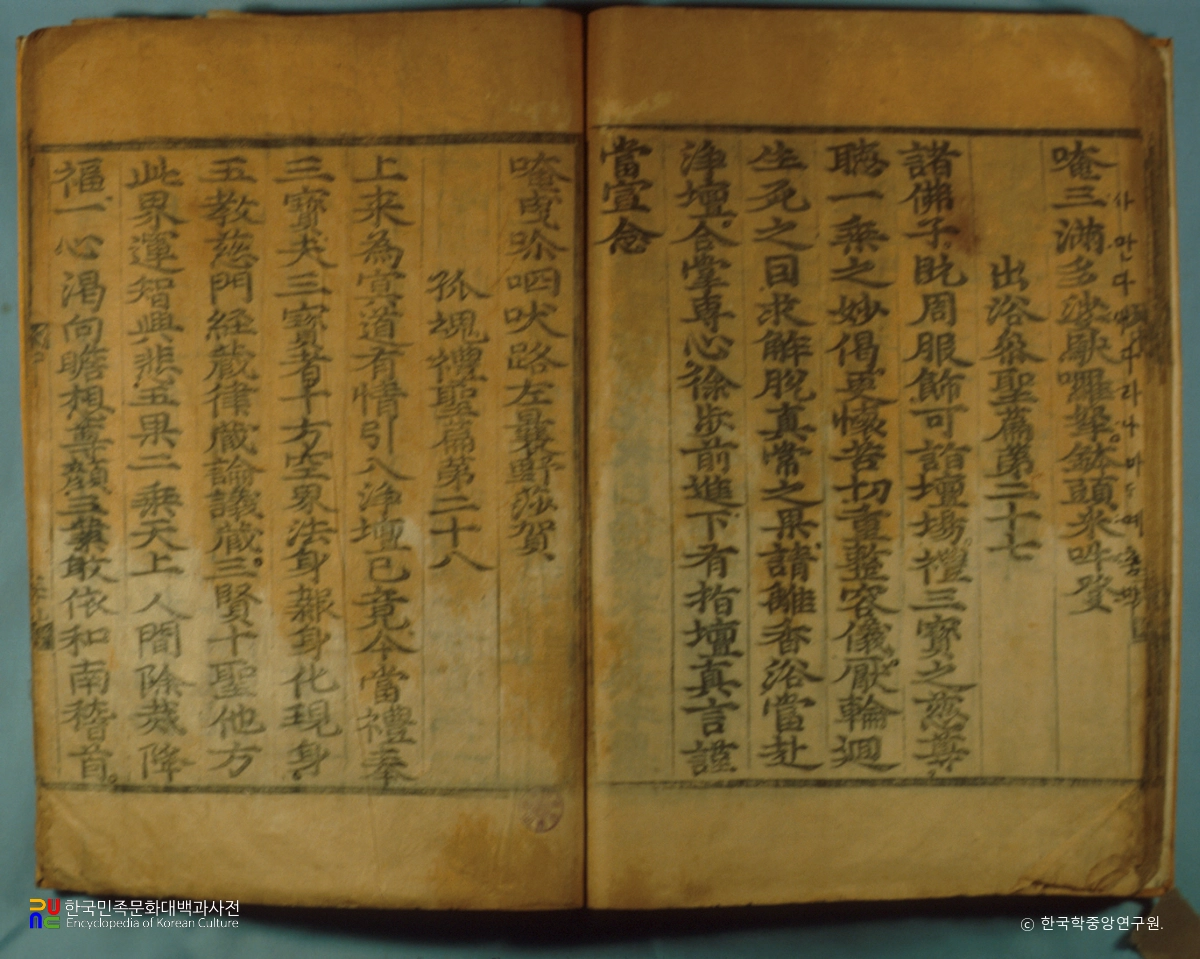 唵三滿多
사만다
出浴叅聖篇第二十七
諸佛子旣周服飾可詣壇場禮三寶之慈尊
聽一乘之妙偈更懷苦切重整容儀厭輪迴
生死之因求解脫真常之果請離香浴當赴
淨壇合掌専心徐步前進下有指壇真言謹
當宣念
唵 路左 野莎賀
孤魂禮聖篇第二十八
上來為冥道有情引入淨壇已竟今當禮奉
三寶夫三寶者十方空界法身報身化現身
五教慈門経蔵律蔵論議蔵三賢十聖他方
此界運智興悲五果二乘天上人間除烖降
福一心渴向瞻想尊顔三業 依和南稽首
한국민족문화대백과사전
Encyclopedia of Korean Culture
ⓒ 한국학중앙연구원.